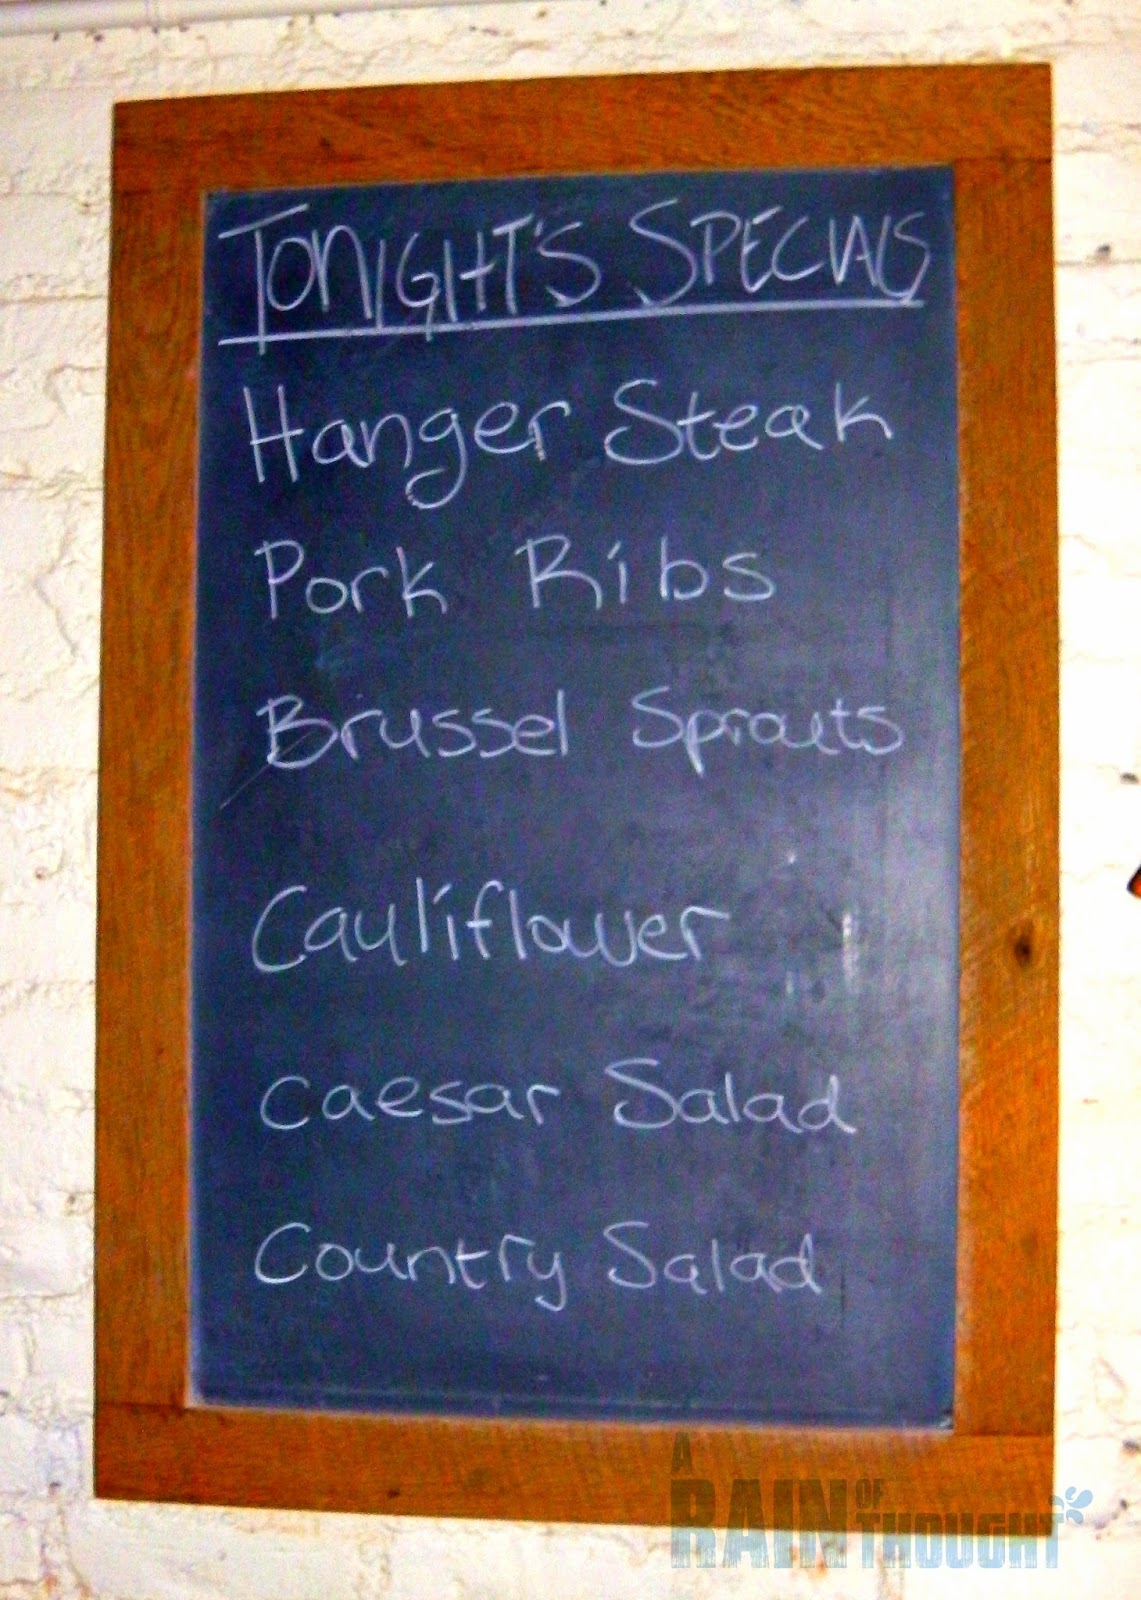 TONIGHT'S SPECIALS
Hanger Steak
Pork Ribs
Brussel Sprouts
Cauliflower
Caesar Salad
Country Salad
A
RAIN OF
THOUGHT